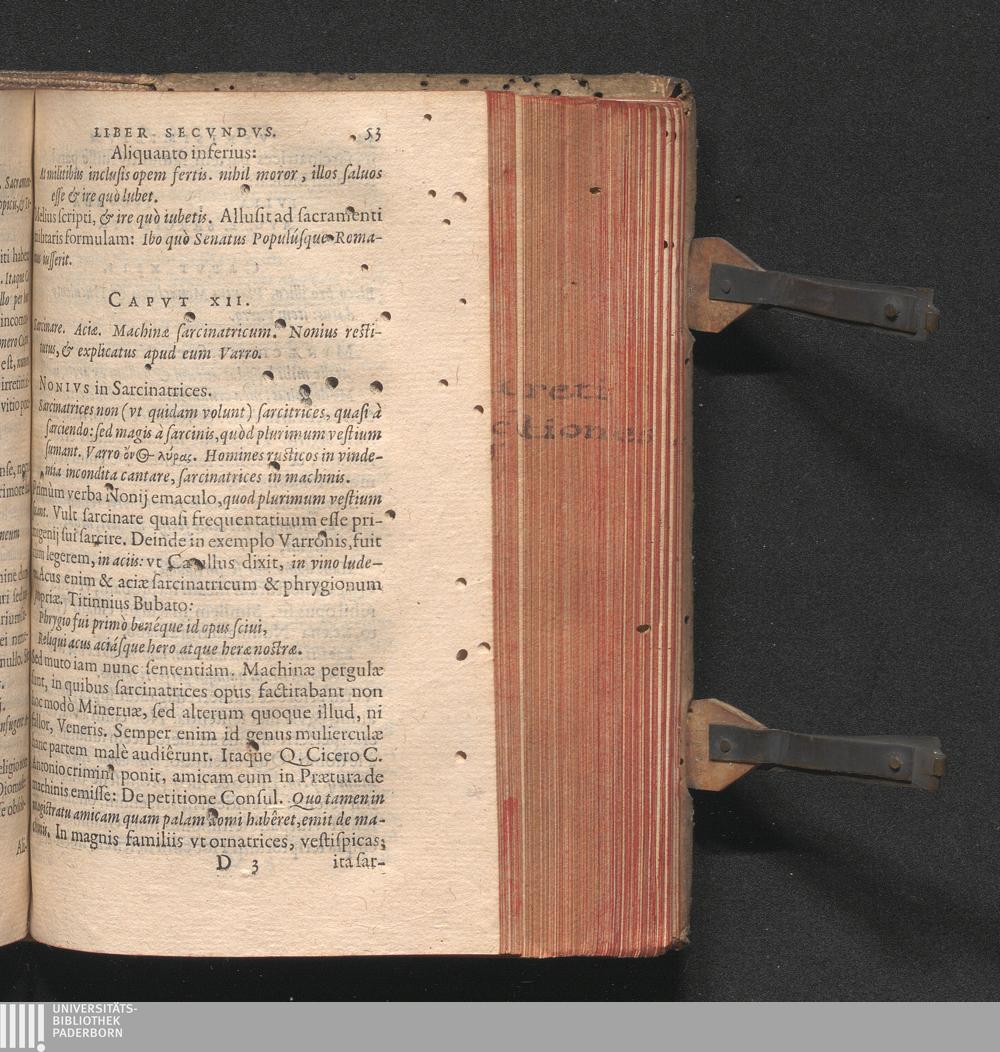 LIBER SECVNDVS. 53
Aliquanto inferius:
At militibus inclusis opem fertis. nihil moror, illos saluos
esse & ire quò lubet.
Melius scripti, & ire quò iubetis. Allusit ad sacramenti
militaris formulam: Ibo quò Senatus Populúsque Roma-
nus iusserit.
CAPVT XII.
Sarcinare. Aciæ. Machinæ sarcinatricum. Nonius resti-
tutus, & explicatus apud eum Varro.
NONIVS in Sarcinatrices.
Sarcinatrices non (vt quidam volunt) sarcitrices, quasi à
sarciendo: sed magis à sarcinis, quòd plurimum vestium
sumant. Varro ὄνος λύρας. Homines rusticos in vinde-
mia incondita cantare, sarcinatrices in machinis.
Primùm verba Nonij emaculo, quod plurimum vestium
Vult sarcinare quasi frequentatiuum esse pri-
migenij sui sarcire. Deinde in exemplo Varronis, fuit
cum legerem, in aciis: vt Catullus dixit, in vino lude-
Acus enim & aciæ sarcinatricum & phrygionum
propriæ. Titinnius Bubato:
Phrygio fui primò benéque id opus sciui,
Reliqui acus aciásque hero atque heræ nostræ.
Sed muto iam nunc sententiam. Machinæ pergulæ
sunt, in quibus sarcinatrices opus factitabant non
hoc modò Mineruæ, sed alterum quoque illud, ni
fallor, Veneris. Semper enim id genus mulierculæ
hanc partem malè audiêrunt. Itaque Q. Cicero C.
Antonio crimini ponit, amicam eum in Prætura de
machinis emisse: De petitione Consul. Quo tamen in
magistratu amicam quam palam domi habêret, emit de ma-
chinis. In magnis familiis vt ornatrices, vestispicas;
D 3 ita sar-
creti
ctiones
UNIVERSITÄTS-
BIBLIOTHEK
PADERBORN